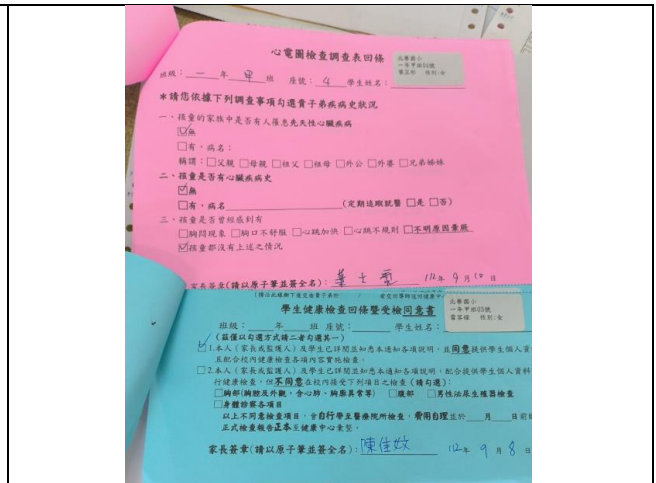 心電圖檢查調查表回條
北華國小
一年甲班
性別:女
班級:一年甲班 座號:4 學生姓名:
*請您依據下列調查事項勾選貴子弟疾病史狀況
一、孩童的家族中是否有人罹患先天性心臟疾病
☑無
□有,病名:
稱謂:□父親 □母親 □祖父 □祖母 □外公 □外婆 □兄弟姊妹
二、孩童是否有心臟疾病史
☑無
□有,病名 (定期追蹤就醫 □是 □否)
三、孩童是否曾經感到有
□胸悶現象 □胸口不舒服 □心跳加快 □心跳不規則 □不明原因暈厥
☑孩童都沒有上述之情況
家長簽章(請以原子筆並簽全名): 112年9月10日
學生健康檢查回條暨受檢同意書
北華國小
一年甲班
性別:女
班級: 年 班 座號: 學生姓名:
(茲僅以勾選方式請二者勾選其一)
☑1.本人(家長或監護人)及學生已詳閱並知悉本通知各項說明,並同意提供學生個人資
且配合校內健康檢查各項內容實施檢查。
□2.本人(家長或監護人)及學生已詳閱並知悉本通知各項說明,配合提供學生個人資料
行健康檢查,但不同意在校內接受下列項目之檢查(請勾選):
□胸部(胸腔及外觀,含心肺、胸廓異常等) □腹部 □男性泌尿生殖器檢查
□身體診察各項目
以上不同意檢查項目,會自行帶至醫療院所檢查,費用自理並於 月 日前
正式檢查報告正本至健康中心彙整。
家長簽章(請以原子筆並簽全名):陳佳妏 112年9月8日